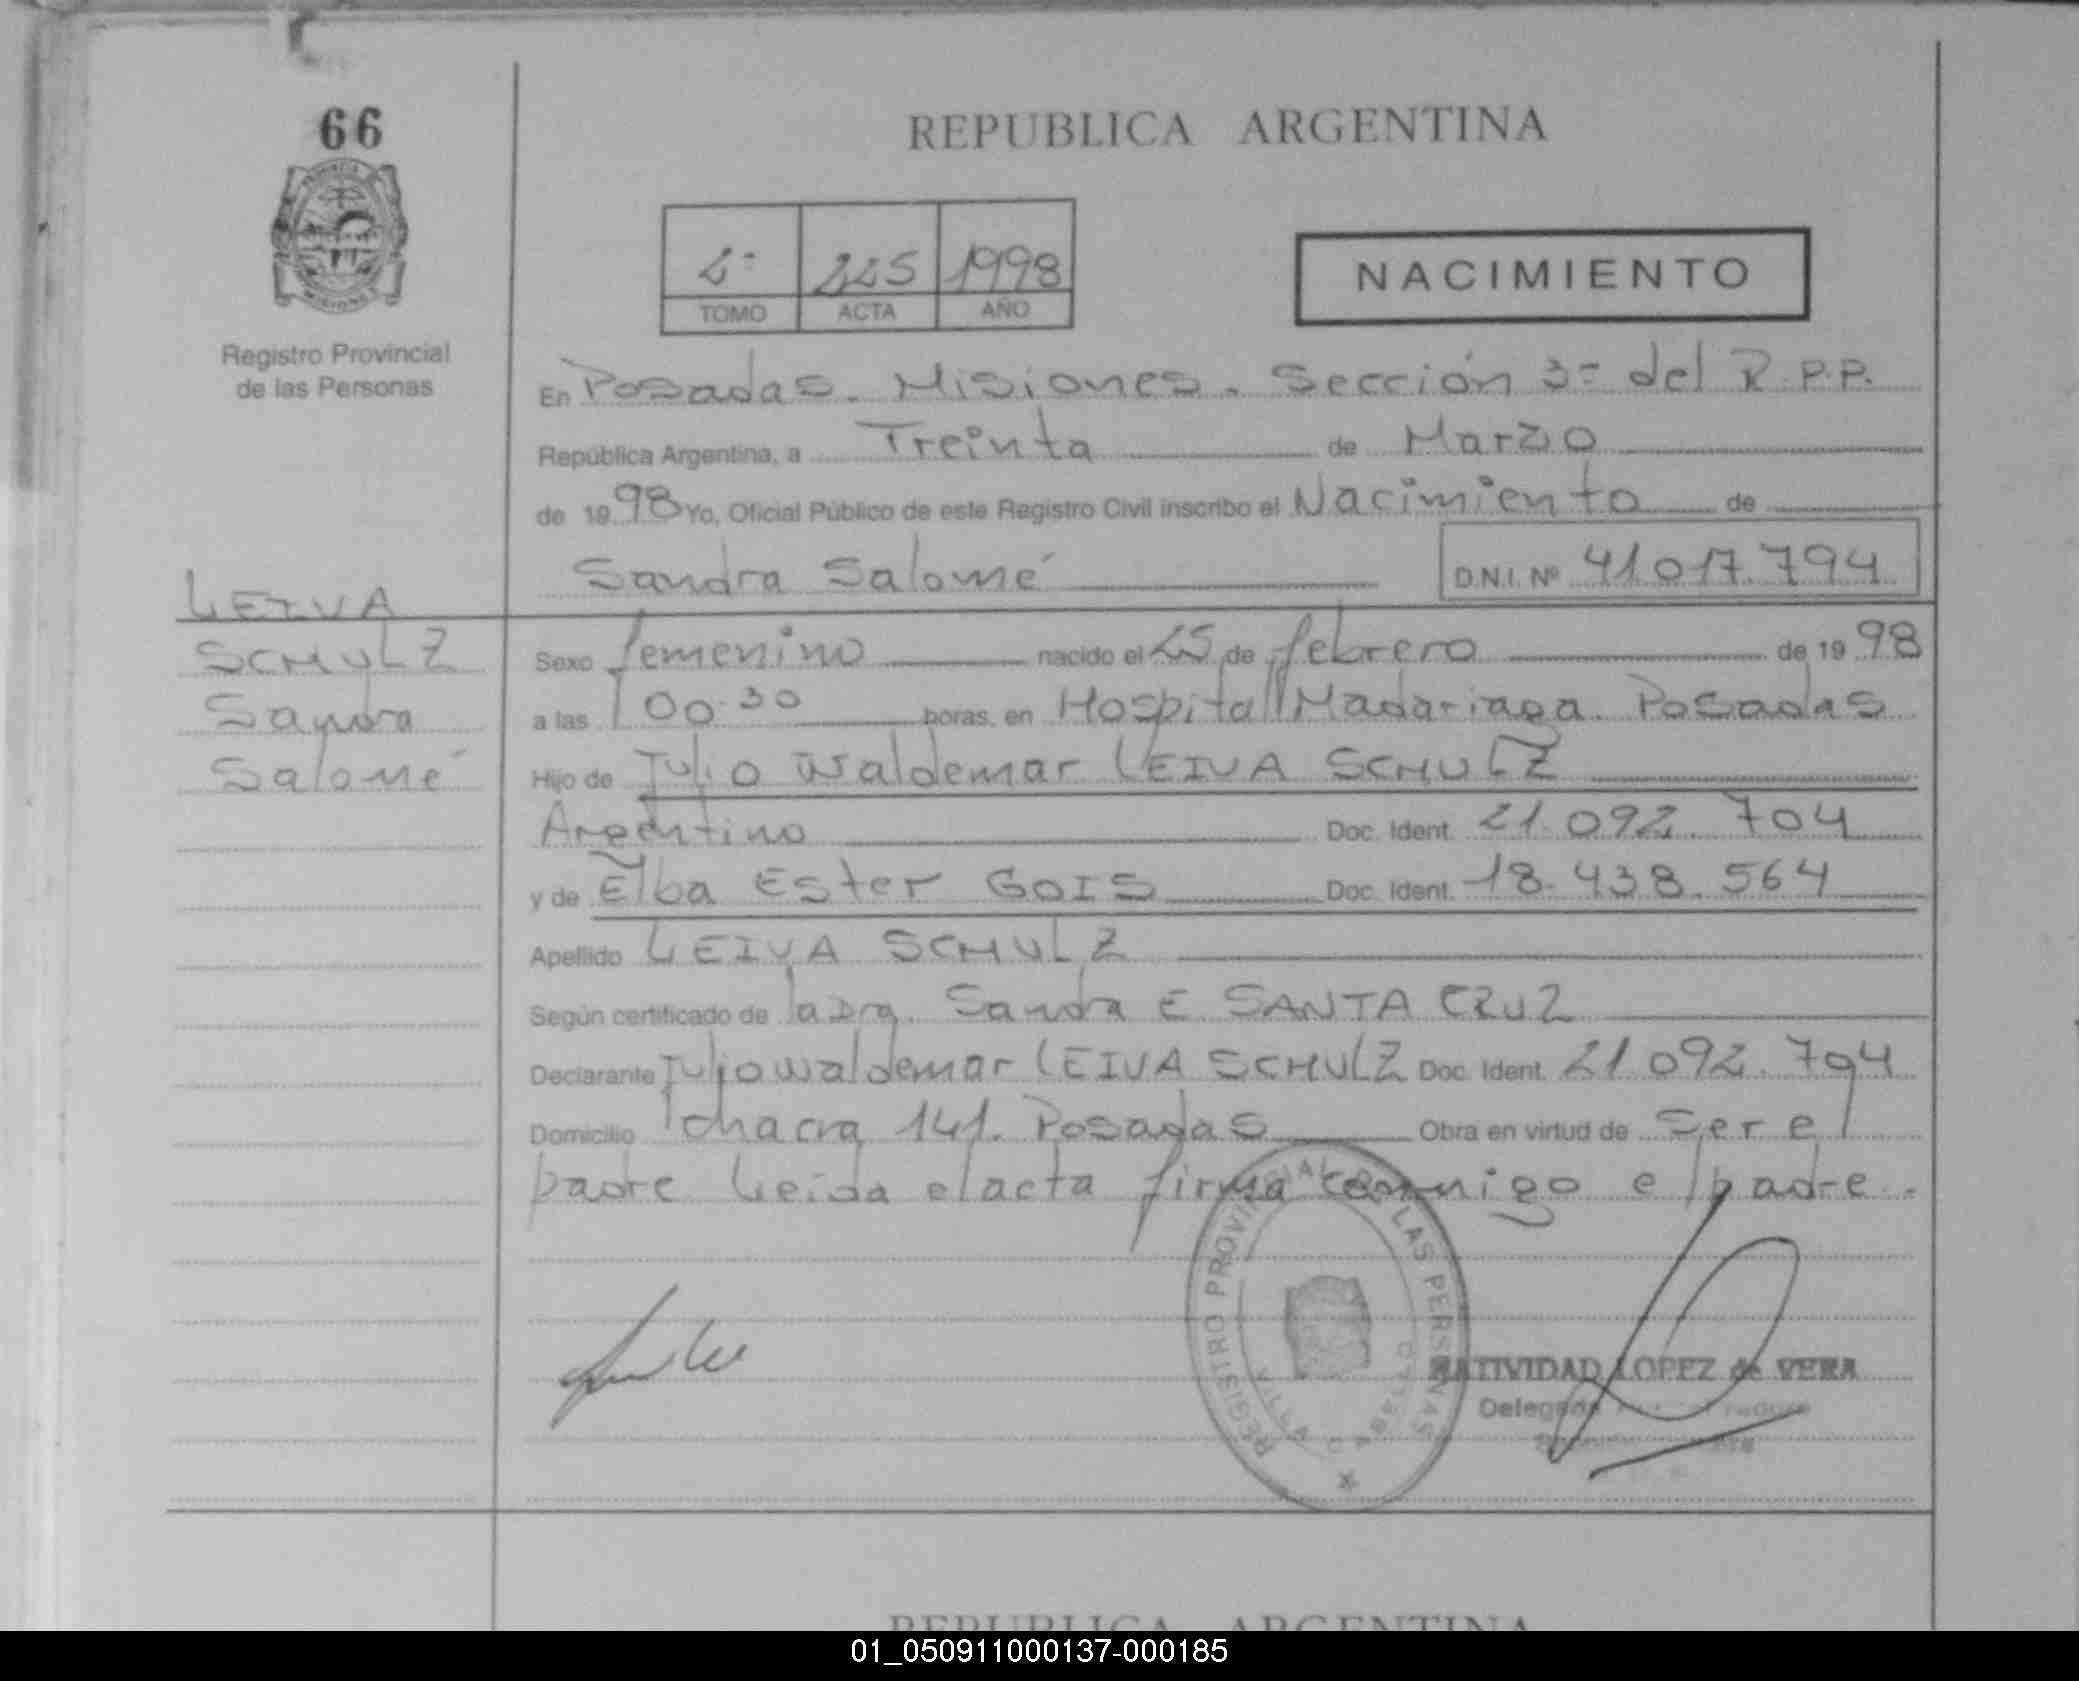 66
REPUBLICA ARGENTINA
2º 225 1998
TOMO ACTA AÑO
NACIMIENTO
Registro Provincial
de las Personas
En Posadas. Misiones. Sección 3º del R.P.P.
República Argentina, a Treinta de Marzo
de 1998 Yo, Oficial Público de este Registro Civil inscribo el Nacimiento de
Sandra Salomé D.N.I. Nº 41.017.794
LEIVA
SCHULZ
Sandra
Salomé
Sexo femenino nacido el 25 de febrero de 1998
a las 00:30 horas, en Hospital Madariaga. Posadas
Hijo de Julio Waldemar LEIVA SCHULZ
Argentino Doc. Ident. 21.092.704
y de Elba Ester GOIS Doc. Ident. 18.438.564
Apellido LEIVA SCHULZ
Según certificado de la Dra. Sandra E SANTA CRUZ
Declarante Julio Waldemar LEIVA SCHULZ Doc. Ident. 21.092.704
Domicilio chacra 141. Posadas Obra en virtud de ser el
padre. Leida el acta firma conmigo el padre.
REGISTRO PROVINCIAL DE LAS PERSONAS
NATIVIDAD LOPEZ de VERA
Delegada
REPUBLICA ARGENTINA
01_050911000137-000185